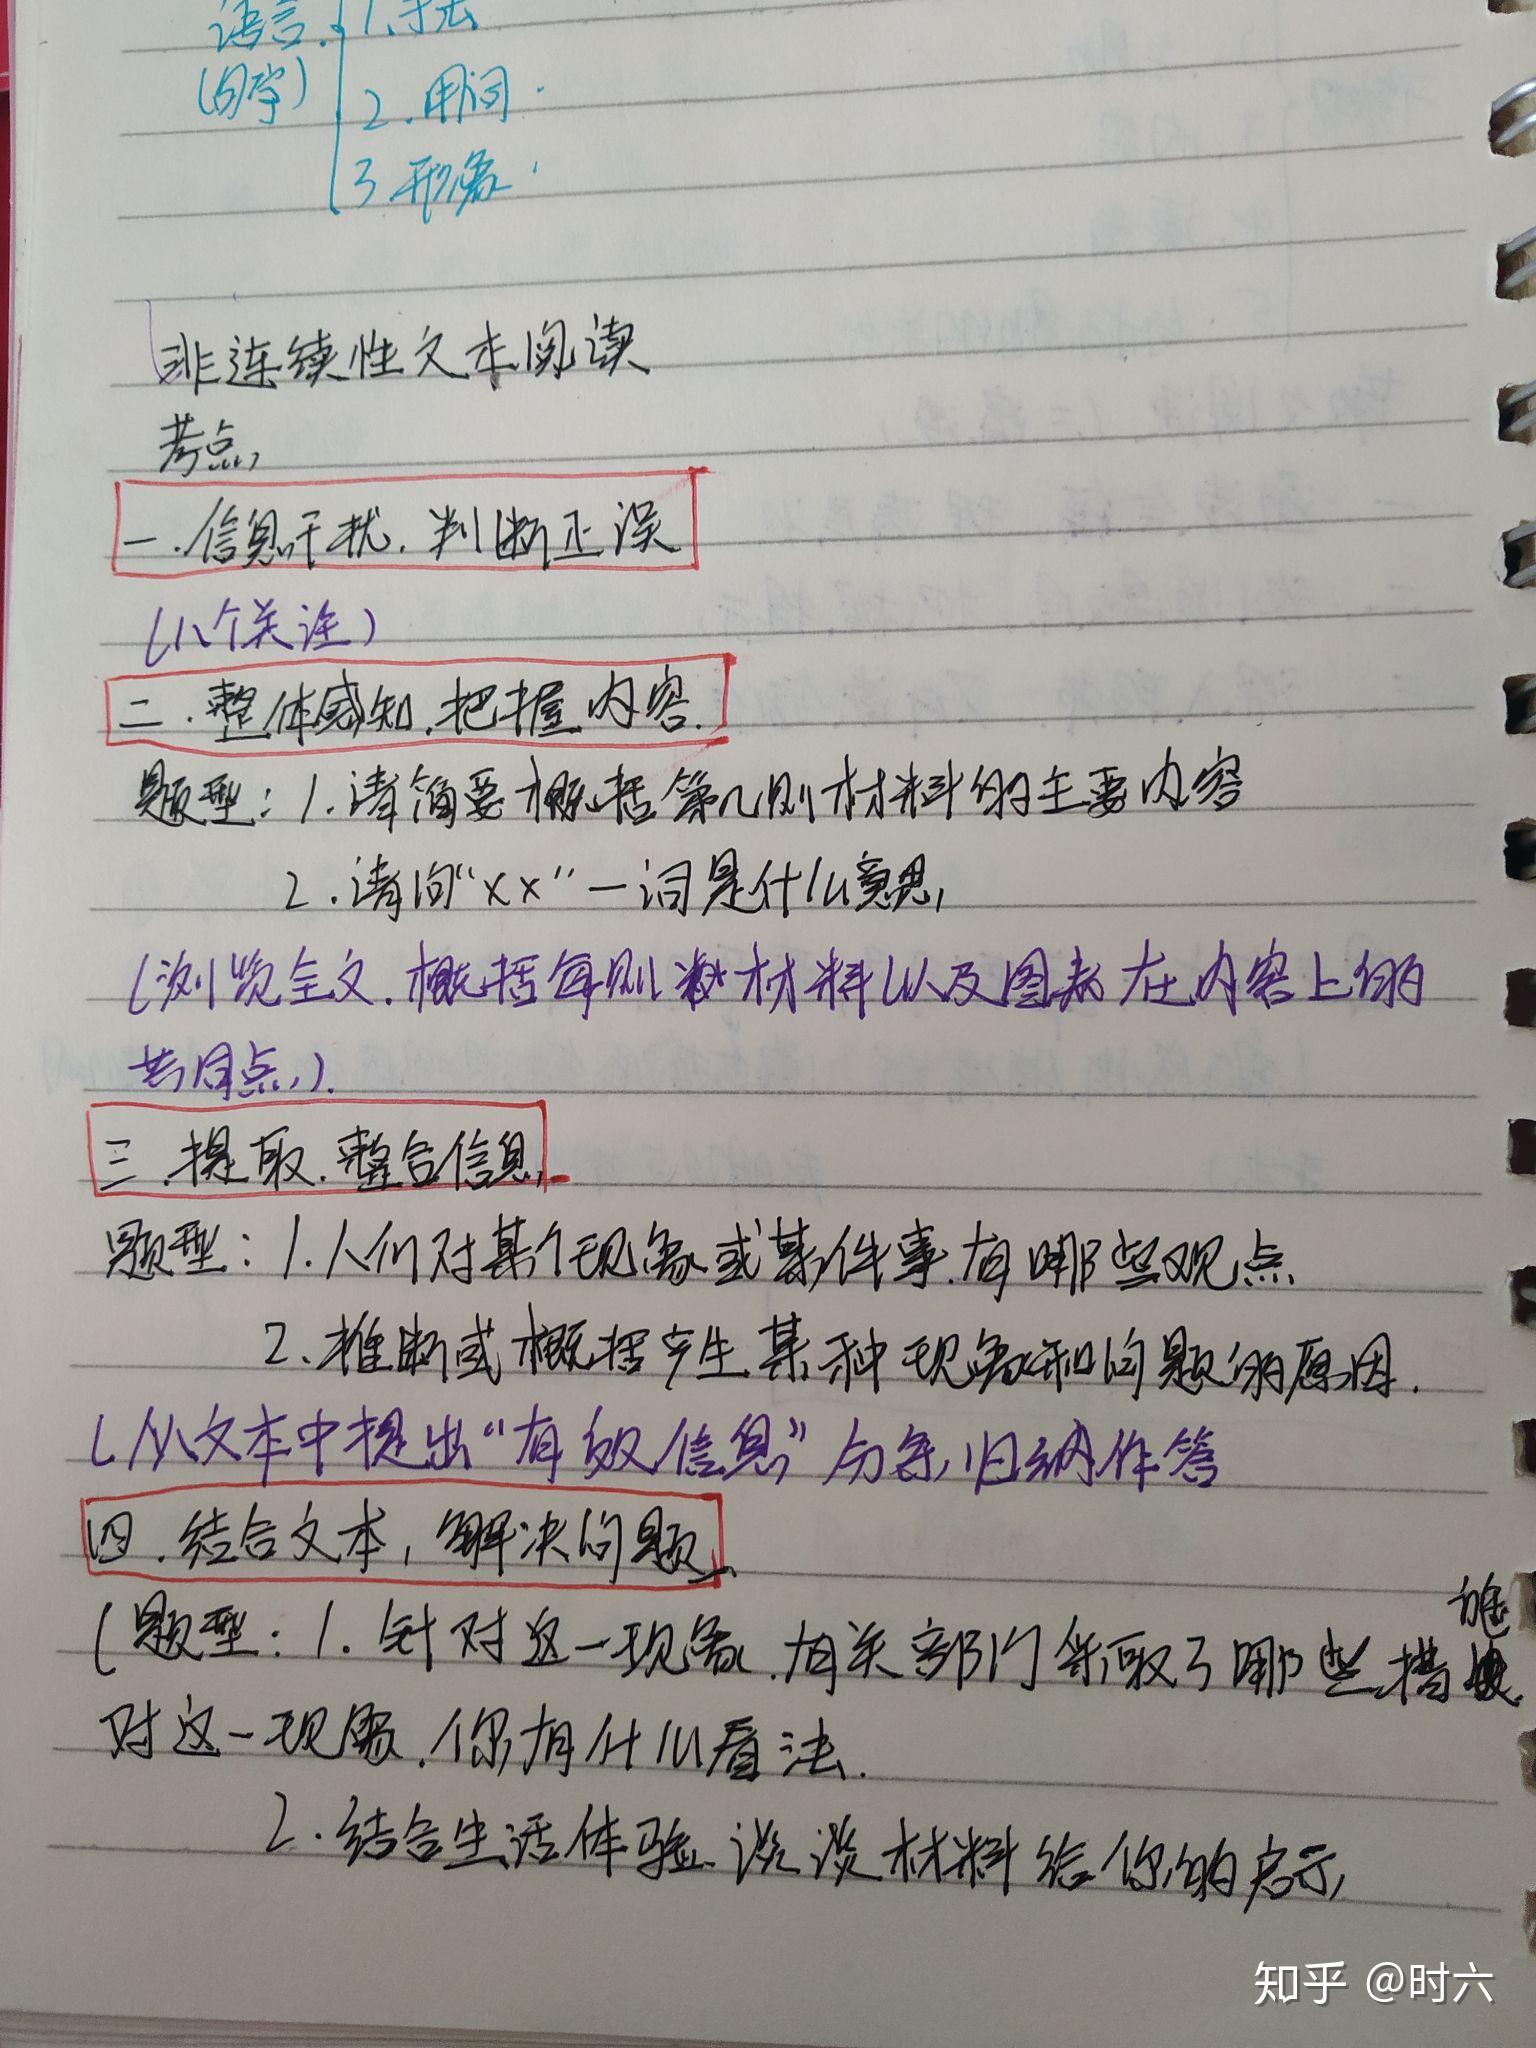 语言. 1.手法
(句字) 2.用词.
3.形象.
非连续性文本阅读
考点,
一.信息干扰.判断正误
(八个关注)
二.整体感知.把握内容.
题型:1.请简要概括第几则材料的主要内容
2.请问“××”一词是什么意思,
(浏览全文.概括每则材料以及图表在内容上的
共同点,).
三.提取.整合信息,
题型:1.人们对某个现象或某件事.有哪些观点
2.推断或概括产生某种现象和问题的原因.
(从文本中提出“有效信息”分条,归纳作答
四.结合文本,解决问题、
(题型:1.针对这一现象.有关部门采取了哪些措施
对这一现象.你有什么看法.
2.结合生活体验.谈谈材料给你的启示,
知乎 @时六